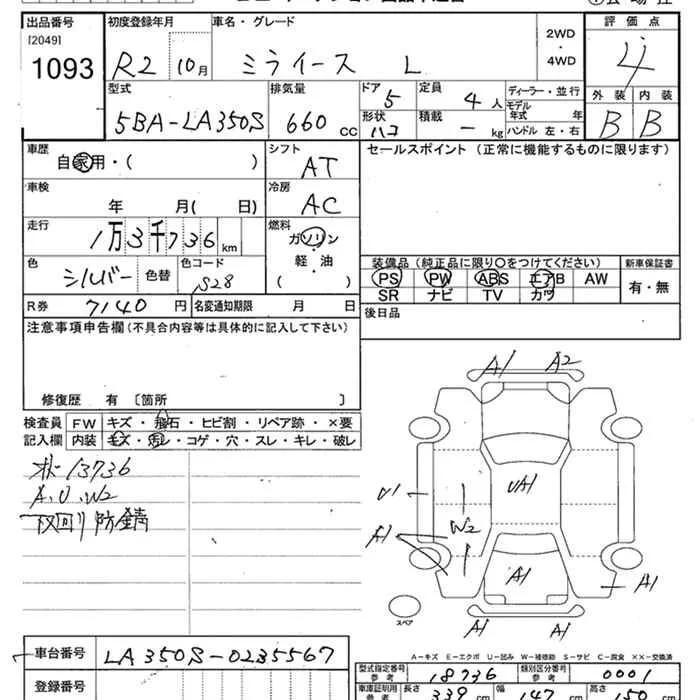 出品番号 初度登録年月 車名・グレード 評価点
[2049]
1093
R2 10月 ミライース L 2WD・4WD 4
型式 排気量 ドア 定員 ディーラー・並行 外装 内装
5BA-LA350S 660 CC 5 4人 モデル年式 年 B B
形状 積載 ハンドル 左・右
ハコ - kg
車歴 シフト セールスポイント (正常に機能するものに限ります)
自家用・( ) AT
車検 冷房
年 月( 日) AC
走行 燃料
1万3千736 km ガソリン
軽・油
( )
色 色替 色コード
シルバー S28
装備品 (純正品に限り○をつけてください) 新車保証書
PS PW ABS エアB AW 有・無
SR ナビ TV カワ
R券 7140円 名変通知期限 月 日 後日品
注意事項申告欄(不具合内容等は具体的に記入して下さい)
修復歴 有〔箇所 〕
検査員 FW キズ・飛石・ヒビ割・リペア跡・×要
記入欄 内装 キズ・汚レ・コゲ・穴・スレ・キレ・破レ
13736
A.U.W2
下回り防錆
A1 A2
U1 UA1
W2
A1
A1 A1
A1 A1
スペア
A-キズ E-エクボ U-凹み W-補修跡 S-サビ C-腐食 XX-交換済
車台番号 LA350S-0235567
登録番号
型式指定番号 参考 18736 類別区分番号 参考 0001
車庫証明用 参考 長さ 339 cm 幅 147 cm 高さ 150 cm